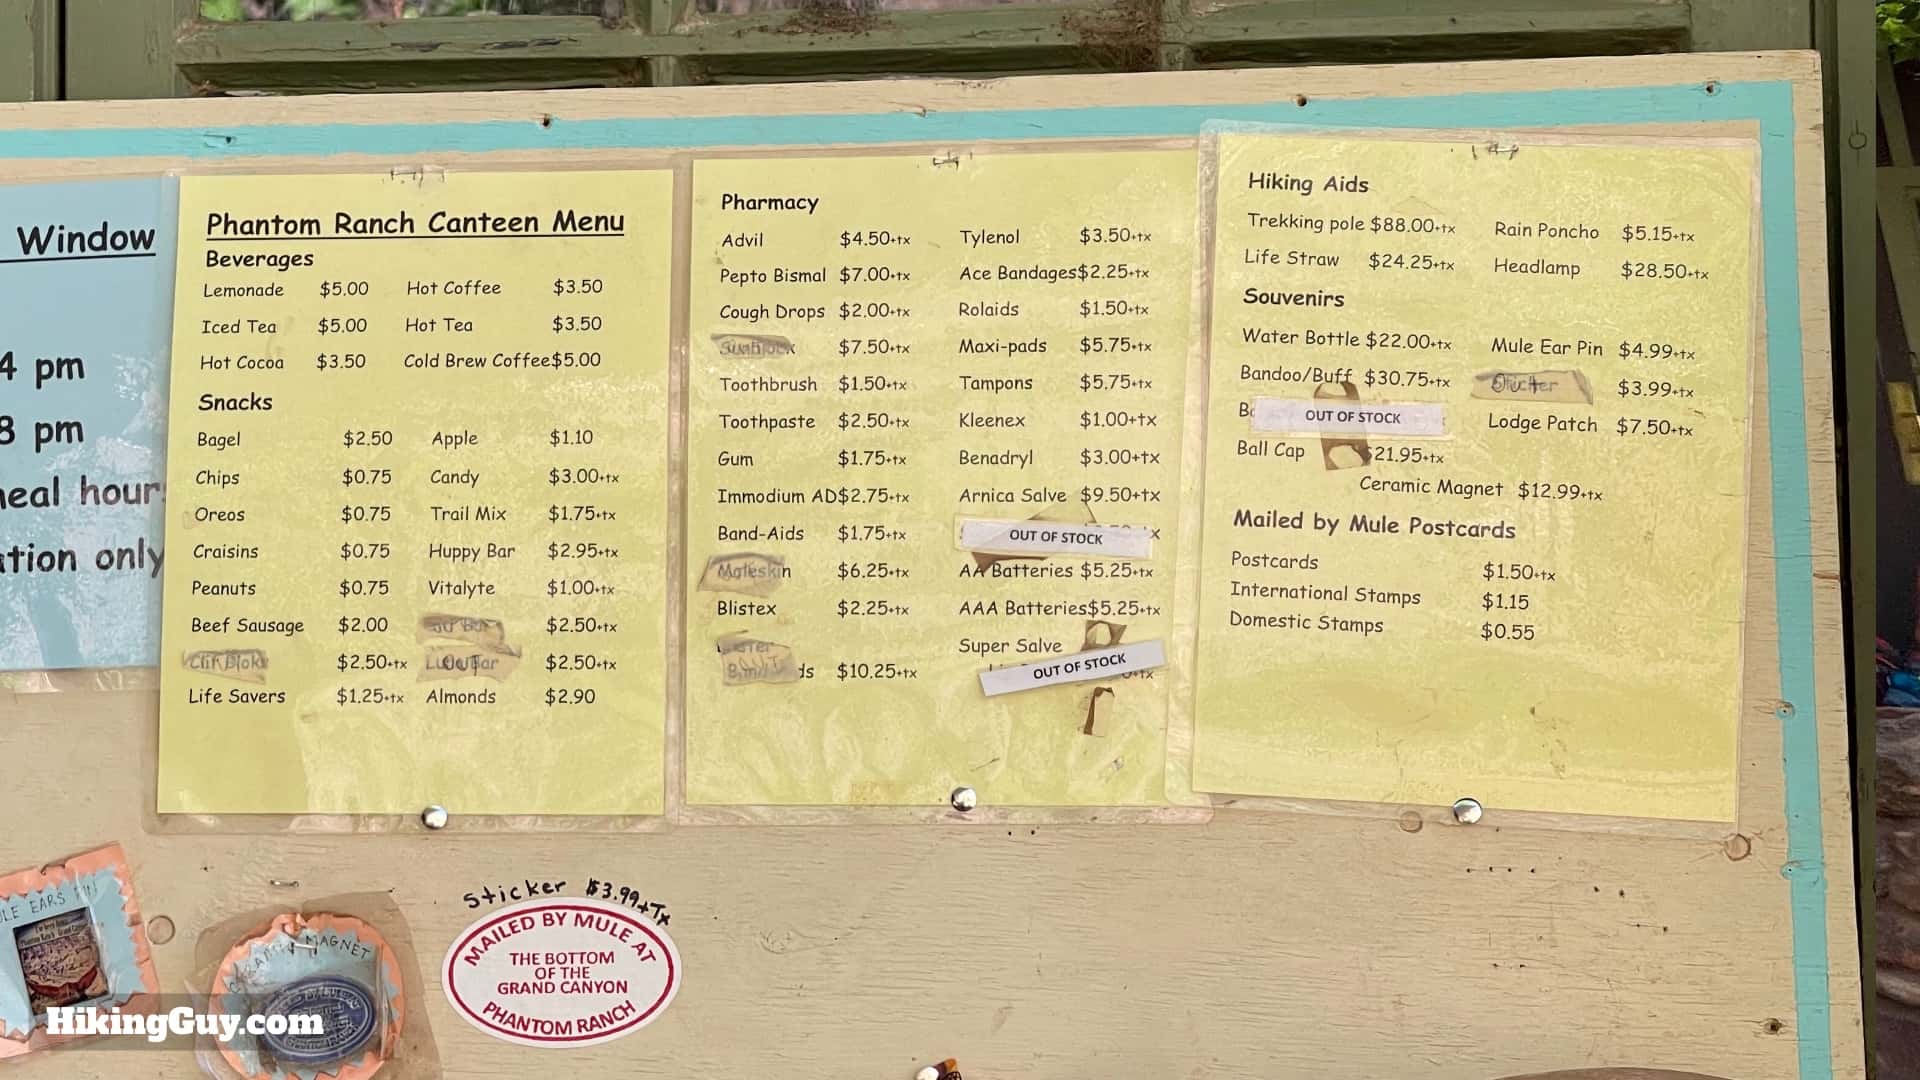 Window
4 pm
8 pm
meal hour
ation only
Phantom Ranch Canteen Menu
Beverages
Lemonade $5.00 Hot Coffee $3.50
Iced Tea $5.00 Hot Tea $3.50
Hot Cocoa $3.50 Cold Brew Coffee $5.00
Snacks
Bagel $2.50 Apple $1.10
Chips $0.75 Candy $3.00+tx
Oreos $0.75 Trail Mix $1.75+tx
Craisins $0.75 Huppy Bar $2.95+tx
Peanuts $0.75 Vitalyte $1.00+tx
Beef Sausage $2.00 $2.50+tx
$2.50+tx $2.50+tx
Life Savers $1.25+tx Almonds $2.90
Pharmacy
Advil $4.50+tx Tylenol $3.50+tx
Pepto Bismal $7.00+tx Ace Bandages $2.25+tx
Cough Drops $2.00+tx Rolaids $1.50+tx
Sunblock $7.50+tx Maxi-pads $5.75+tx
Toothbrush $1.50+tx Tampons $5.75+tx
Toothpaste $2.50+tx Kleenex $1.00+tx
Gum $1.75+tx Benadryl $3.00+tx
Immodium AD $2.75+tx Arnica Salve $9.50+tx
Band-Aids $1.75+tx OUT OF STOCK
Moleskin $6.25+tx AA Batteries $5.25+tx
Blistex $2.25+tx AAA Batteries $5.25+tx
Super Salve
$10.25+tx OUT OF STOCK
Hiking Aids
Trekking pole $88.00+tx Rain Poncho $5.15+tx
Life Straw $24.25+tx Headlamp $28.50+tx
Souvenirs
Water Bottle $22.00+tx Mule Ear Pin $4.99+tx
Bandoo/Buff $30.75+tx Sticker $3.99+tx
OUT OF STOCK Lodge Patch $7.50+tx
Ball Cap $21.95+tx
Ceramic Magnet $12.99+tx
Mailed by Mule Postcards
Postcards $1.50+tx
International Stamps $1.15
Domestic Stamps $0.55
Sticker $3.99+Tx
MAILED BY MULE AT
THE BOTTOM
OF THE
GRAND CANYON
PHANTOM RANCH
EARS
MAGNET
HikingGuy.com